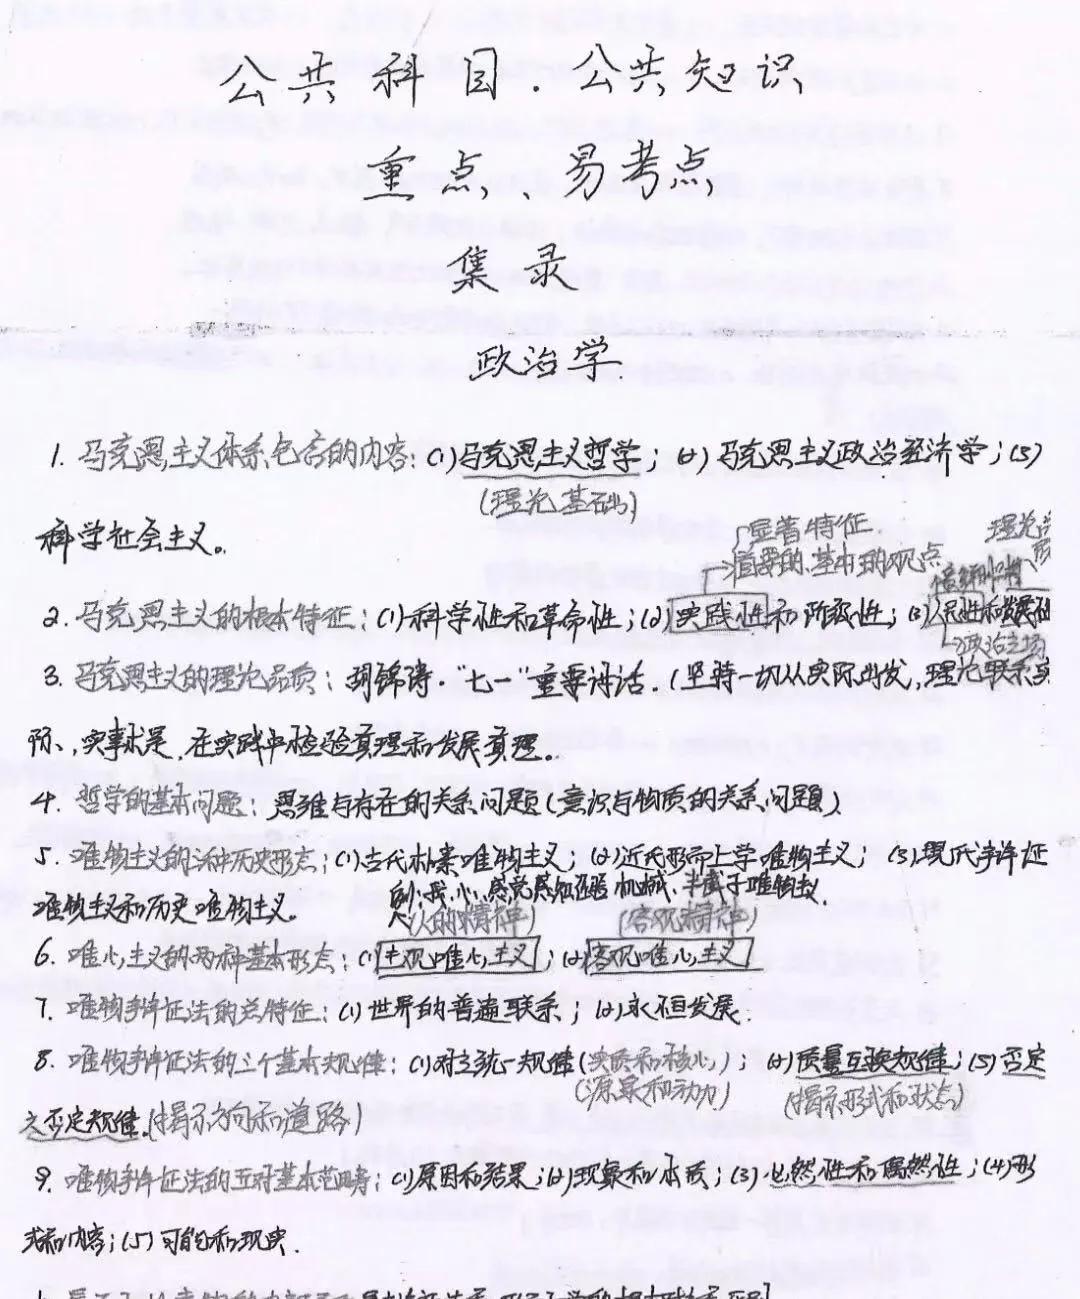 公共科目·公共知识
重点、易考点
集录
政治学
1. 马克思主义体系包含的内容：(1)马克思主义哲学；(2)马克思主义政治经济学；(3)
(理论基础)
科学社会主义。
显著特征
首要的、基本的观点
理论
2. 马克思主义的根本特征：(1)科学性和革命性；(2)实践性和阶级性；(3)人民性和发展性
→政治立场
3. 马克思主义的理论品质：胡锦涛·"七一"重要讲话.(坚持一切从实际出发，理论联系实
际、实事求是、在实践中检验真理和发展真理。
4. 哲学的基本问题：思维与存在的关系问题(意识与物质的关系问题)
5. 唯物主义的三种历史形态：(1)古代朴素唯物主义；(2)近代形而上学唯物主义；(3)现代辩证
机械、半截子唯物主义.
唯物主义和历史唯物主义。
(人的精神) (客观精神)
6. 唯心主义的两种基本形态：(1)主观唯心主义；(2)客观唯心主义
7. 唯物辩证法的总特征：(1)世界的普遍联系；(2)永恒发展.
8. 唯物辩证法的三个基本规律：(1)对立统一规律(实质和核心)；(2)质量互换规律；(3)否定
(源泉和动力) (揭示形式和状态)
之否定规律.(揭示方向和道路)
9. 唯物辩证法的五对基本范畴：(1)原因和结果；(2)现象和本质；(3)必然性和偶然性；(4)形
式和内容；(5)可能和现实.